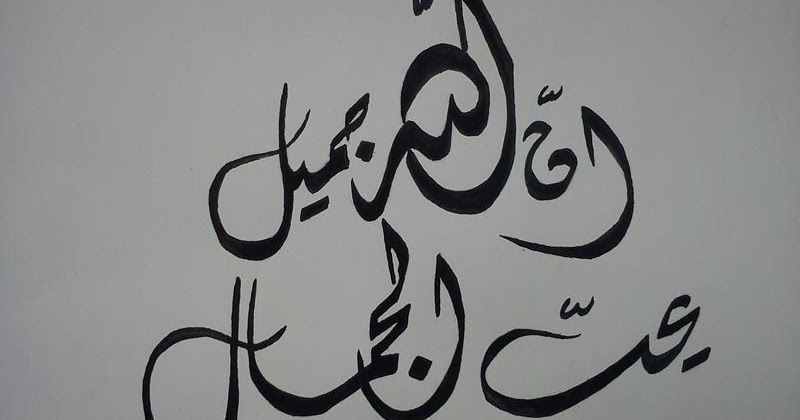 انّ اللّه جميل
يحبّ الجمال